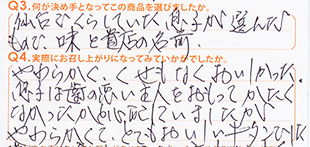 Q3.何が決め手となってこの商品を選びましたか。
仙台でくらしていた息子が選んだ
もので、味と貴店の名前.
Q4.実際にお召し上がりになってみていかがでしたか。
やわらかく、くせもなくおいしかった。
息子は歯の悪い主人を
なかったか心配していましたが
やわらかくて、とてもおいしい牛タンでした